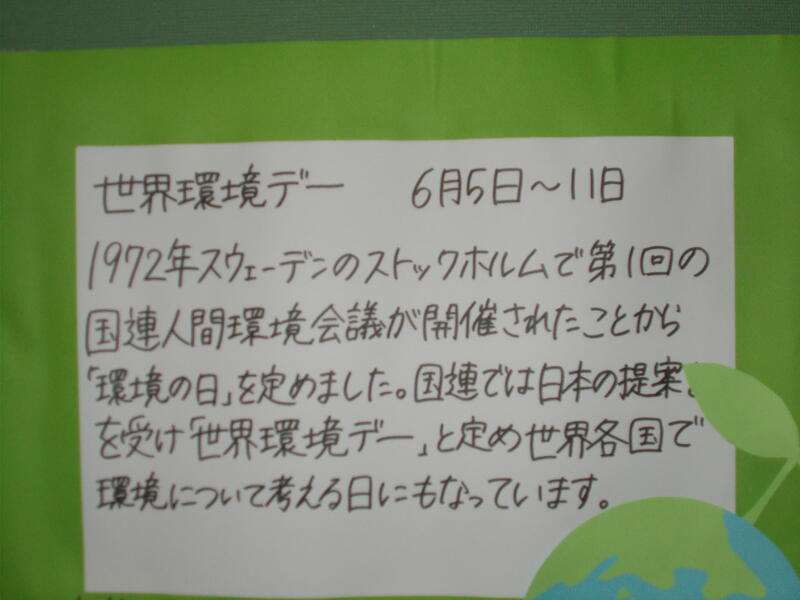 世界環境デー 6月5日～11日
1972年スウェーデンのストックホルムで第1回の
国連人間環境会議が開催されたことから
「環境の日」を定めました。国連では日本の提案
を受け「世界環境デー」と定め世界各国で
環境について考える日にもなっています。